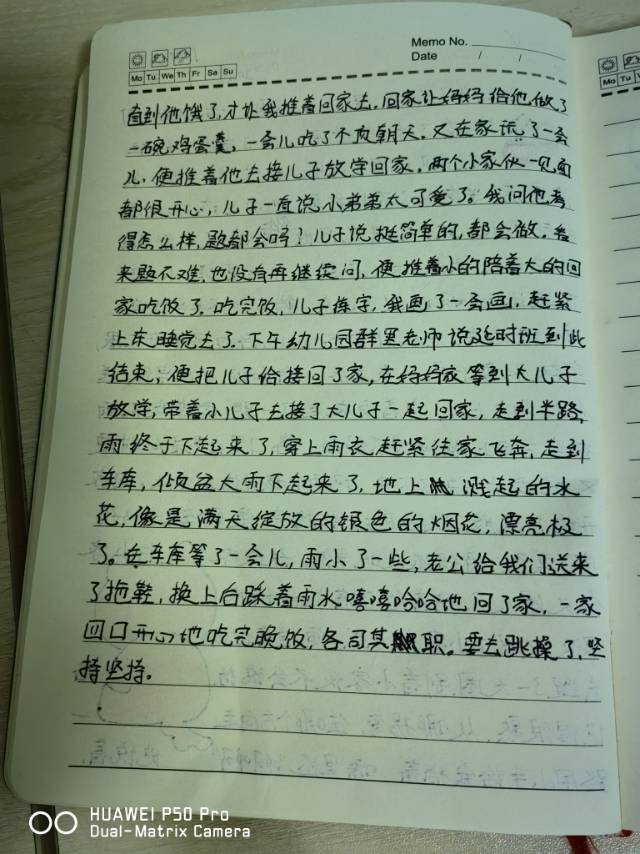 Memo No.
Date / /
Mo Tu We Th Fr Sa Su
直到他饿了,才让我推着回家去。回家让妈妈给他做了
一碗鸡蛋羹,一会儿吃了不顶朝天。又在家玩了一会
儿,便推着他去接儿子放学回家,两个小家伙一见面
都很开心,儿子一直说小弟弟太可爱了。我问他考
得怎么样,题都会吗?儿子说挺简单的,都会做。看
来题不难,也没有再继续问,便推着小的陪着大的回
家吃饭了。吃完饭,儿子练字,我画了一会画,赶紧
上床睡觉去了。下午幼儿园群里老师说延时班到此
结束,便把儿子给接回了家,在妈妈家等到大儿子
放学,带着小儿子去接了大儿子一起回家,走到半路,
雨终于下起来了,穿上雨衣赶紧往家飞奔,走到
车库,倾盆大雨下起来了,地上溅起的水
花,像是满天绽放的银色的烟花,漂亮极
了。在车库等了一会儿,雨小了一些,老公给我们送来
了拖鞋,换上后踩着雨水嘻嘻哈哈地回了家,一家
四口开心地吃完晚饭,各司其职。要去跳操了,坚
持坚持。
HUAWEI P50 Pro
Dual-Matrix Camera